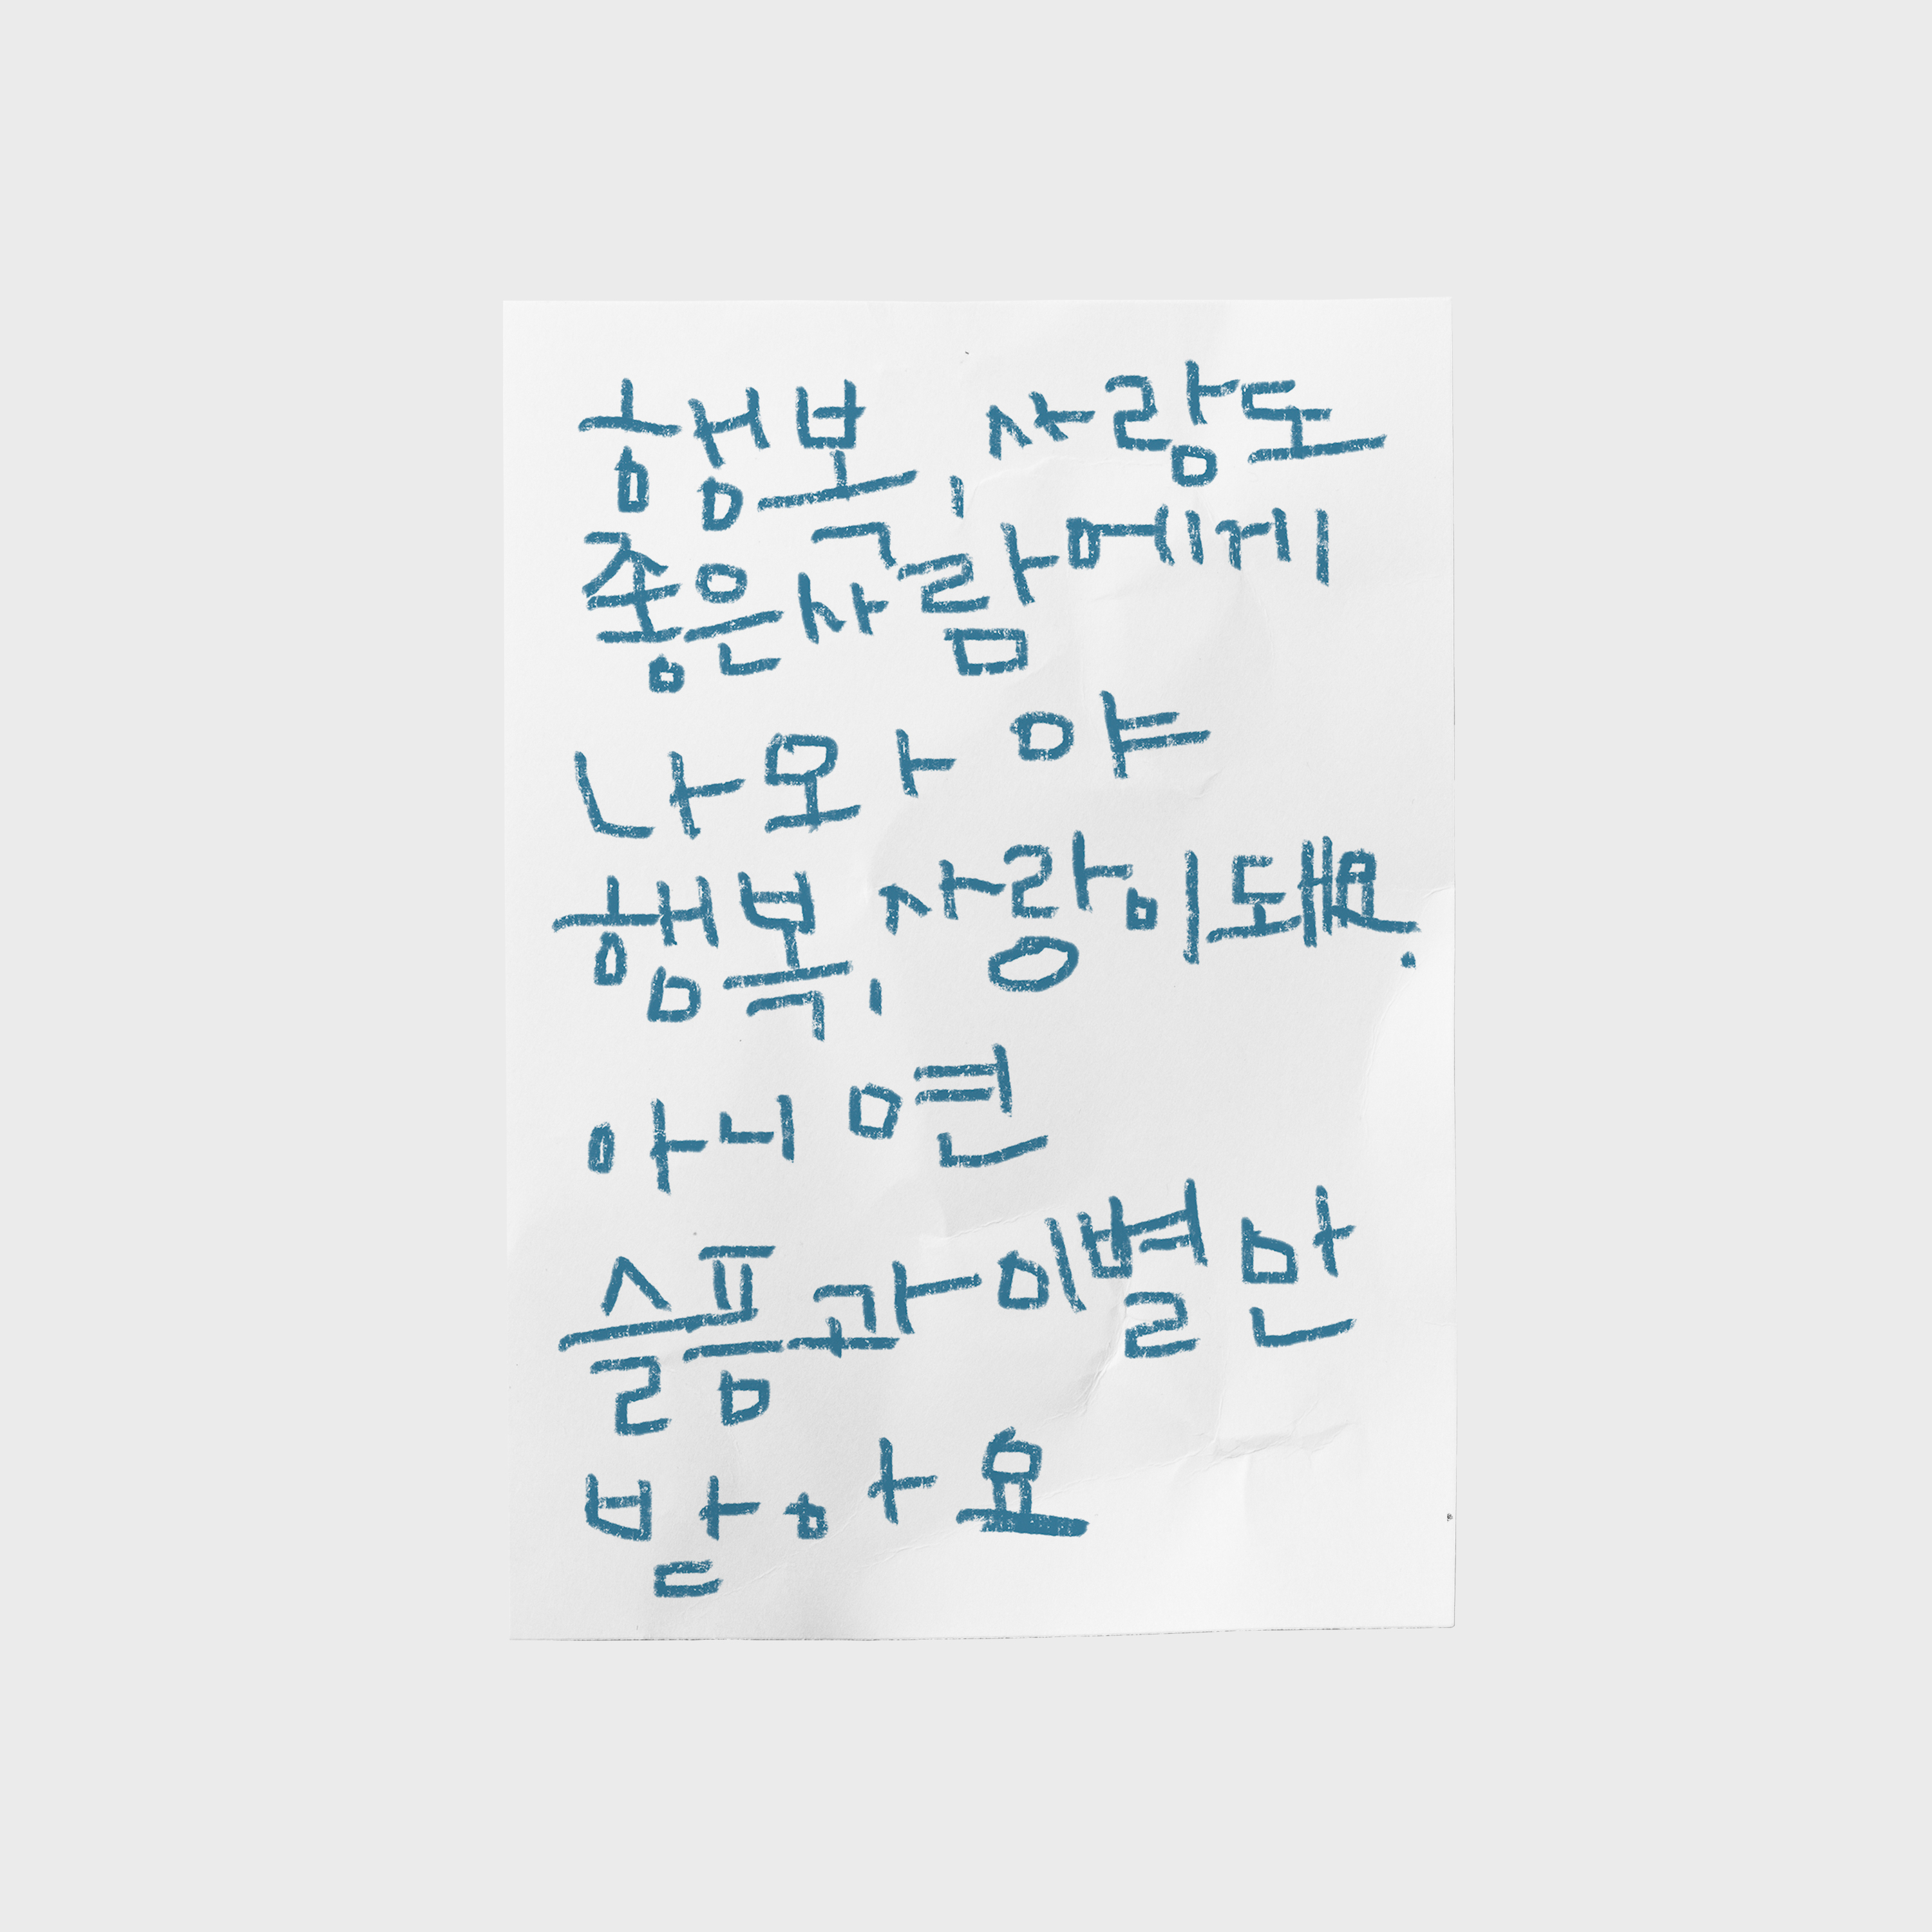 행복, 사랑도
좋은사람에게
나와 야
행복, 사랑이돼요.
아니 면
슬픔과이별만
받아요